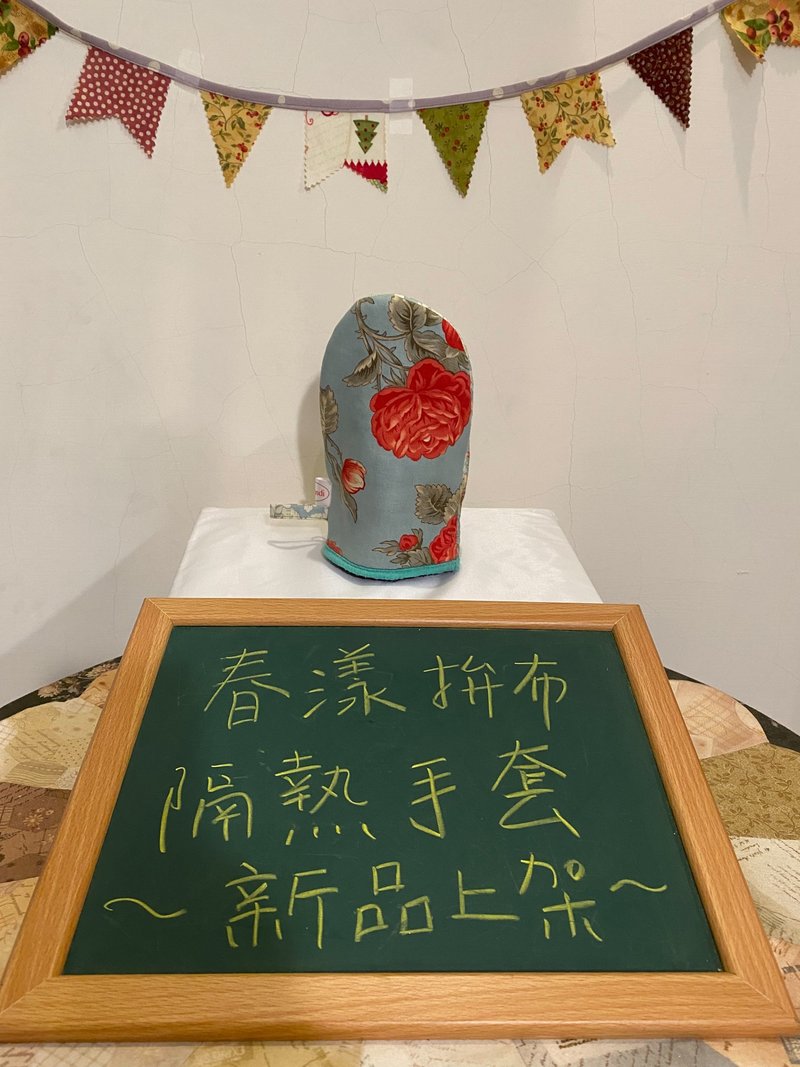 春漾拚布
隔熱手套
～新品上架～